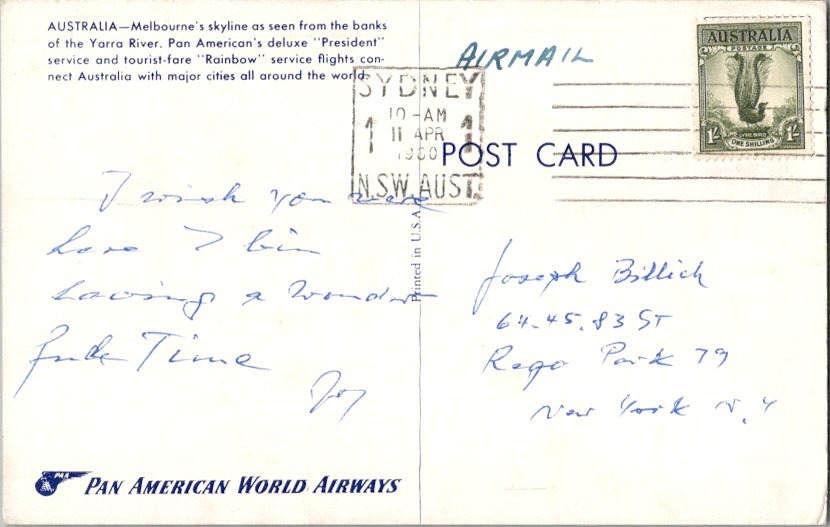 AUSTRALIA—Melbourne's skyline as seen from the banks
of the Yarra River. Pan American's deluxe "President"
service and tourist-fare "Rainbow" service flights con-
nect Australia with major cities all around the world.
AIRMAIL
AUSTRALIA
POSTAGE
LYREBIRD
1/- 1/-
ONE SHILLING
SYDNEY
10 - AM
1 11 APR 1
1960
N.S.W. AUST.
POST CARD
I wish you were
here I bin
having a wonder
fulle Time
Joy
Printed in U.S.A.
Joseph Billich
64-45.83 ST
Rego Park 79
New York N.Y
PAA
PAN AMERICAN WORLD AIRWAYS